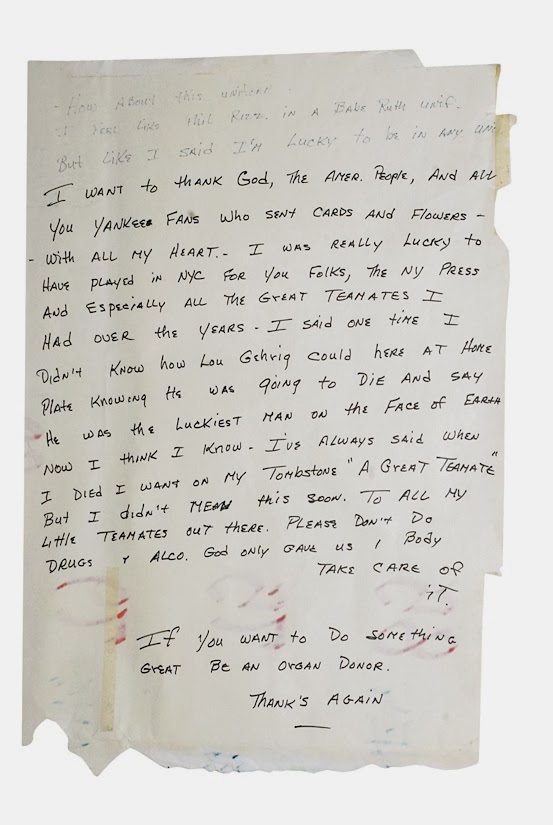 - How About this uniform.
I feel like Phil Rizz. in a Babe Ruth unif.
But like I said I'm Lucky to be in any uni
I want to thank God, the Amer. People, and all
you Yankee Fans who sent cards and flowers -
- with all my heart. - I was really Lucky to
Have played in NYC for you Folks, the NY Press
And Especially all the Great Teamates I
Had over the years - I said one time I
Didn't Know how Lou Gehrig could here at Home
Plate Knowing He was going to Die and say
He was the Luckiest Man on the Face of Earth
Now I think I Know - I've Always said when
I Died I want on my Tombstone "A Great Teamate"
But I didn't mean this soon. To all my
Little Teamates out there. Please Don't Do
Drugs + Alco. God only gave us 1 Body
Take care of
iT.
If you want to Do something
Great Be an Organ Donor.
Thank's Again